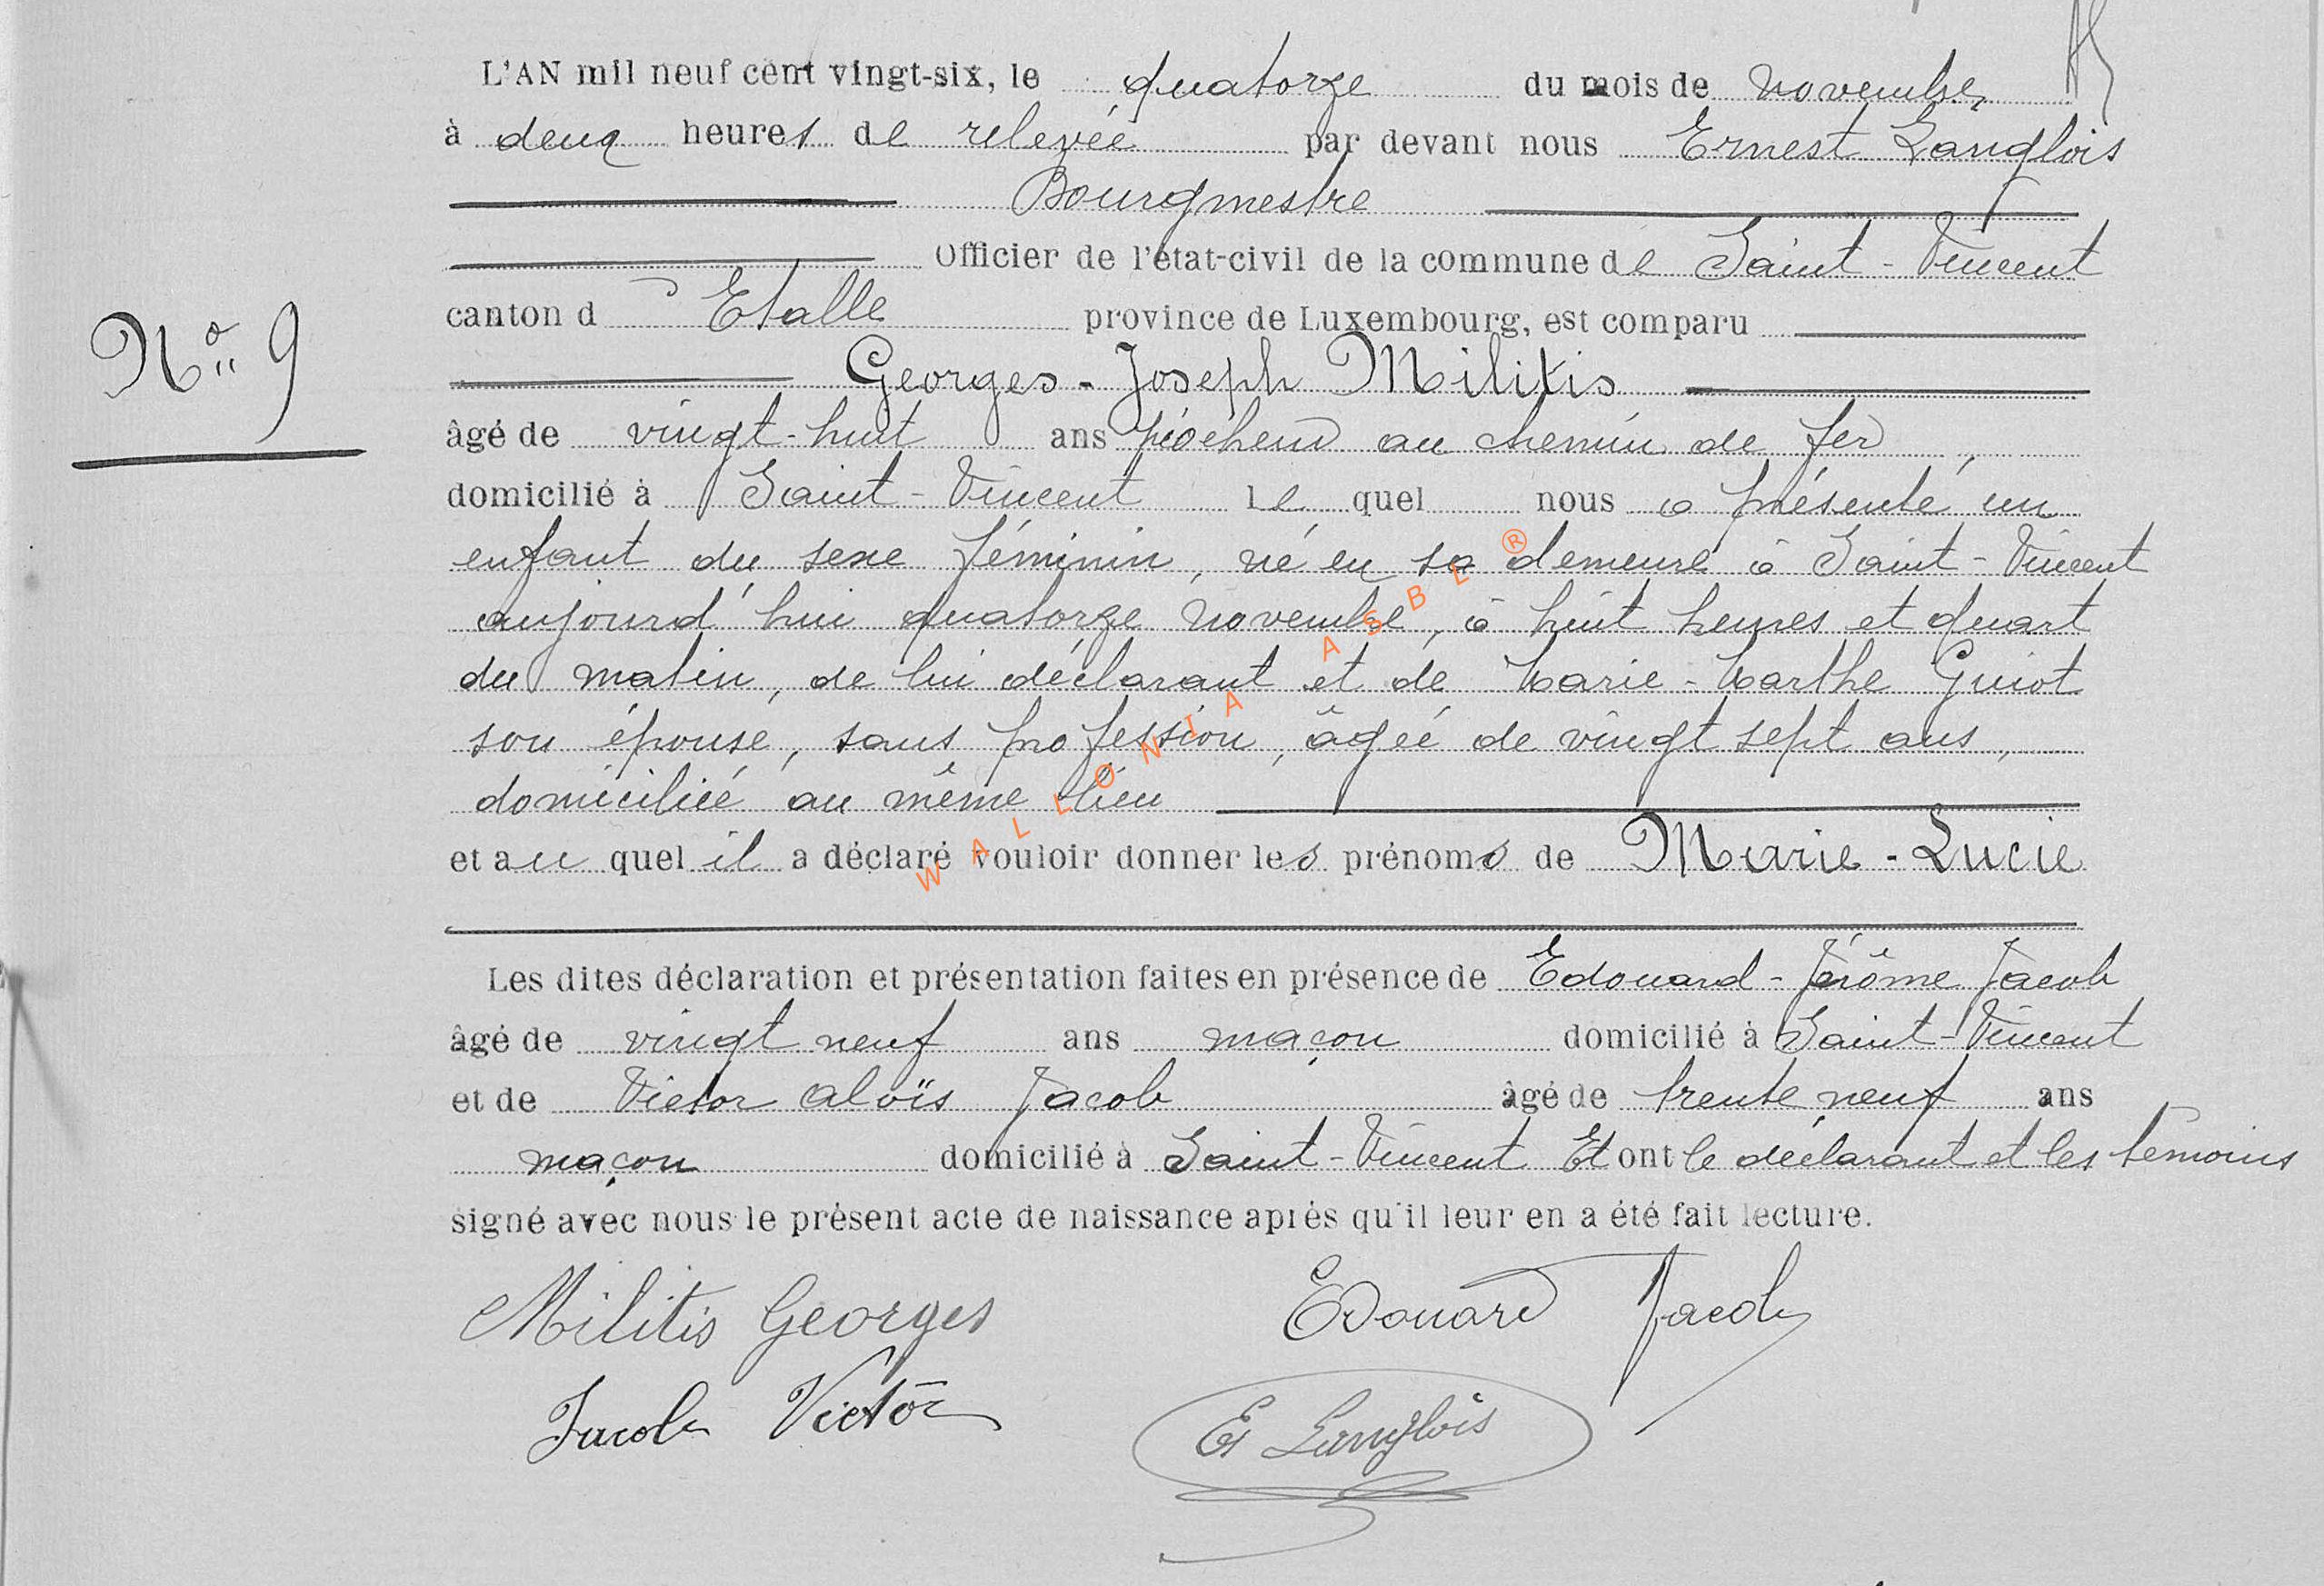 L'AN mil neuf cent vingt-six, le quatorze du mois de novembre,
à deux heures de relevée par devant nous Ernest Langlois
Bourgmestre
Officier de l'état-civil de la commune de Saint-Vincent
canton d Etalle province de Luxembourg, est comparu
N° 9
Georges-Joseph Militis
âgé de vingt-huit ans piocheur au chemin de fer,
domicilié à Saint-Vincent lequel nous a présenté un
enfant du sexe féminin, né en sa demeure à Saint-Vincent
aujourd'hui quatorze novembre, à huit heures et quart
du matin, de lui déclarant et de Marie-Marthe Guiot
son épouse, sans profession, âgée de vingt sept ans,
domiciliée au même lieu
et au quel il a déclaré vouloir donner les prénoms de Marie-Lucie
WALLONIA ASBL ®
Les dites déclaration et présentation faites en présence de Edouard-Jérôme Jacob
âgé de vingt neuf ans maçon domicilié à Saint-Vincent
et de Victor Aloïs Jacob âgé de trente neuf ans
maçon domicilié à Saint-Vincent Et ont le déclarant et les témoins
signé avec nous le présent acte de naissance après qu'il leur en a été fait lecture.
Militis Georges Edouard Jacob
Jacob Victor Et Langlois